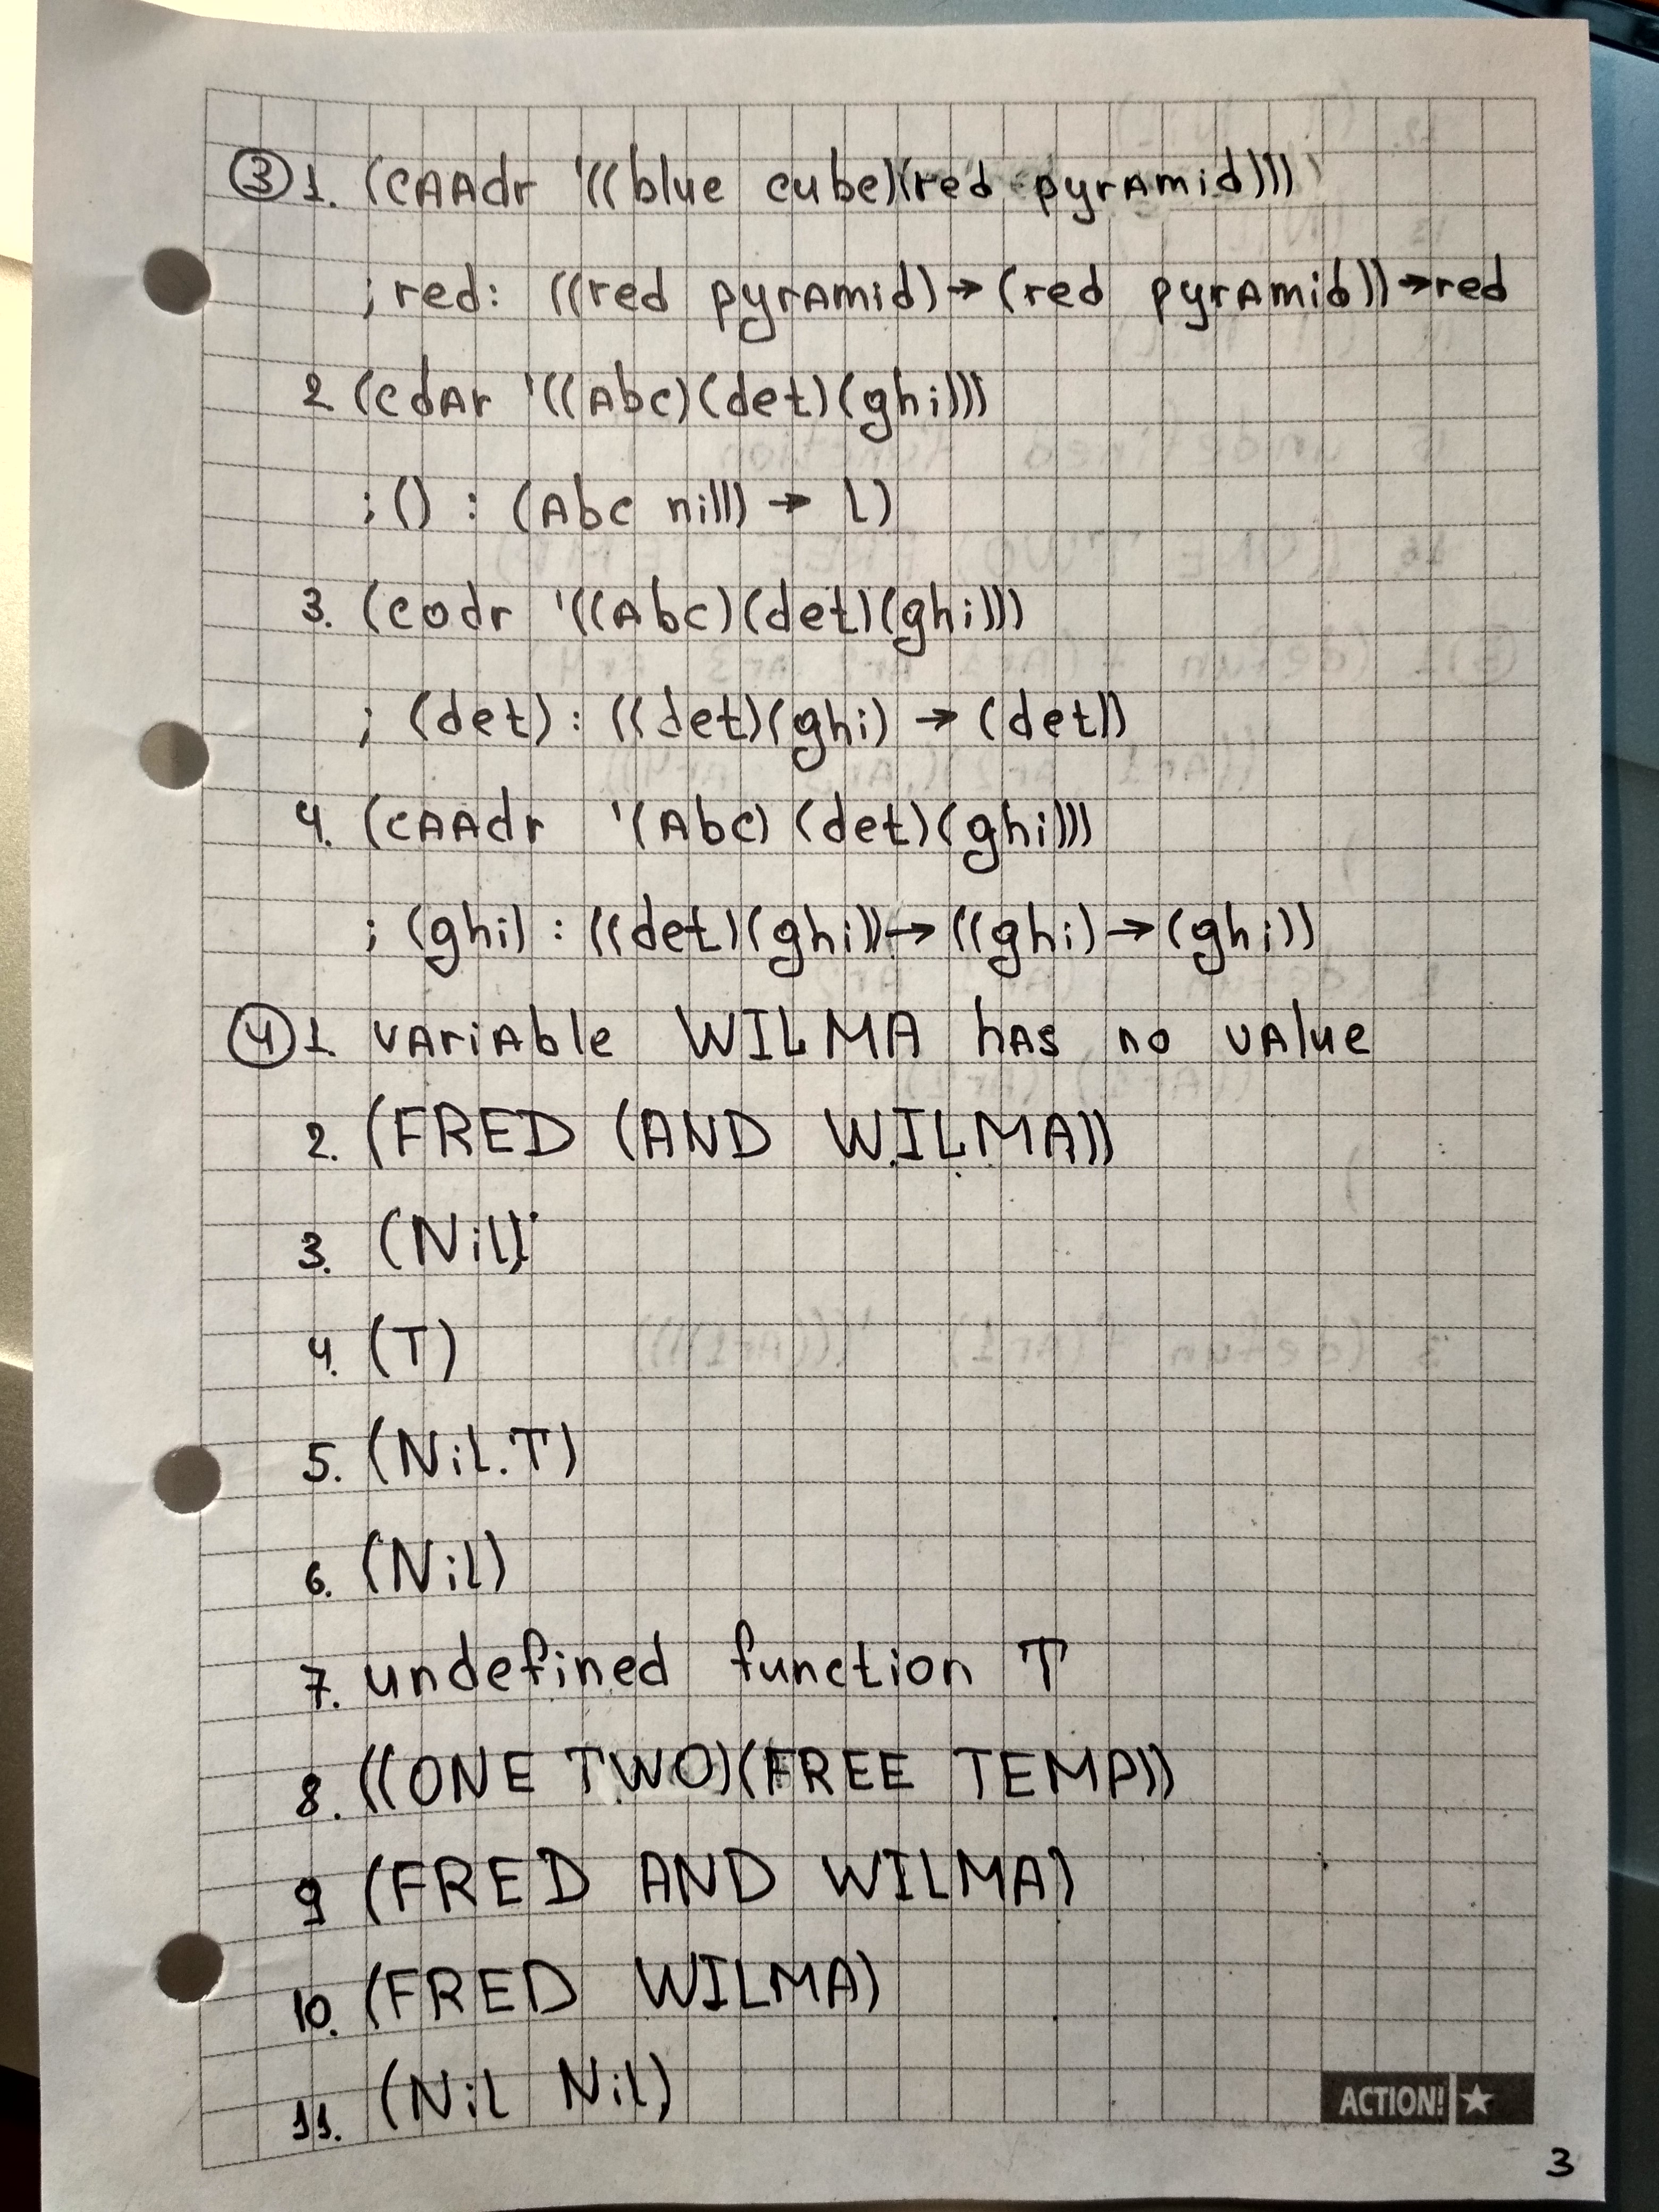 ③ 1. (cAAdr '((blue cube)(red pyrAmid)))
; red: ((red pyrAmid) → (red pyrAmid)) → red
2 (cdAr '((Abc)(det)(ghi)))
; () : (Abc nill) → ()
3. (codr '((Abc)(det)(ghi)))
; (det) : ((det)(ghi) → (det))
4. (cAAdr '(Abc) (det)(ghi)))
; (ghi) : ((det)(ghi)) → ((ghi) → (ghi))
④ 1 vAriAble WILMA hAs no vAlue
2. (FRED (AND WILMA))
3. (Nil)
4. (T)
5. (Nil.T)
6. (Nil)
7. undefined function T
8. ((ONE TWO)(FREE TEMP))
9 (FRED AND WILMA)
10. (FRED WILMA)
11. (Nil Nil)
ACTION! ★
3